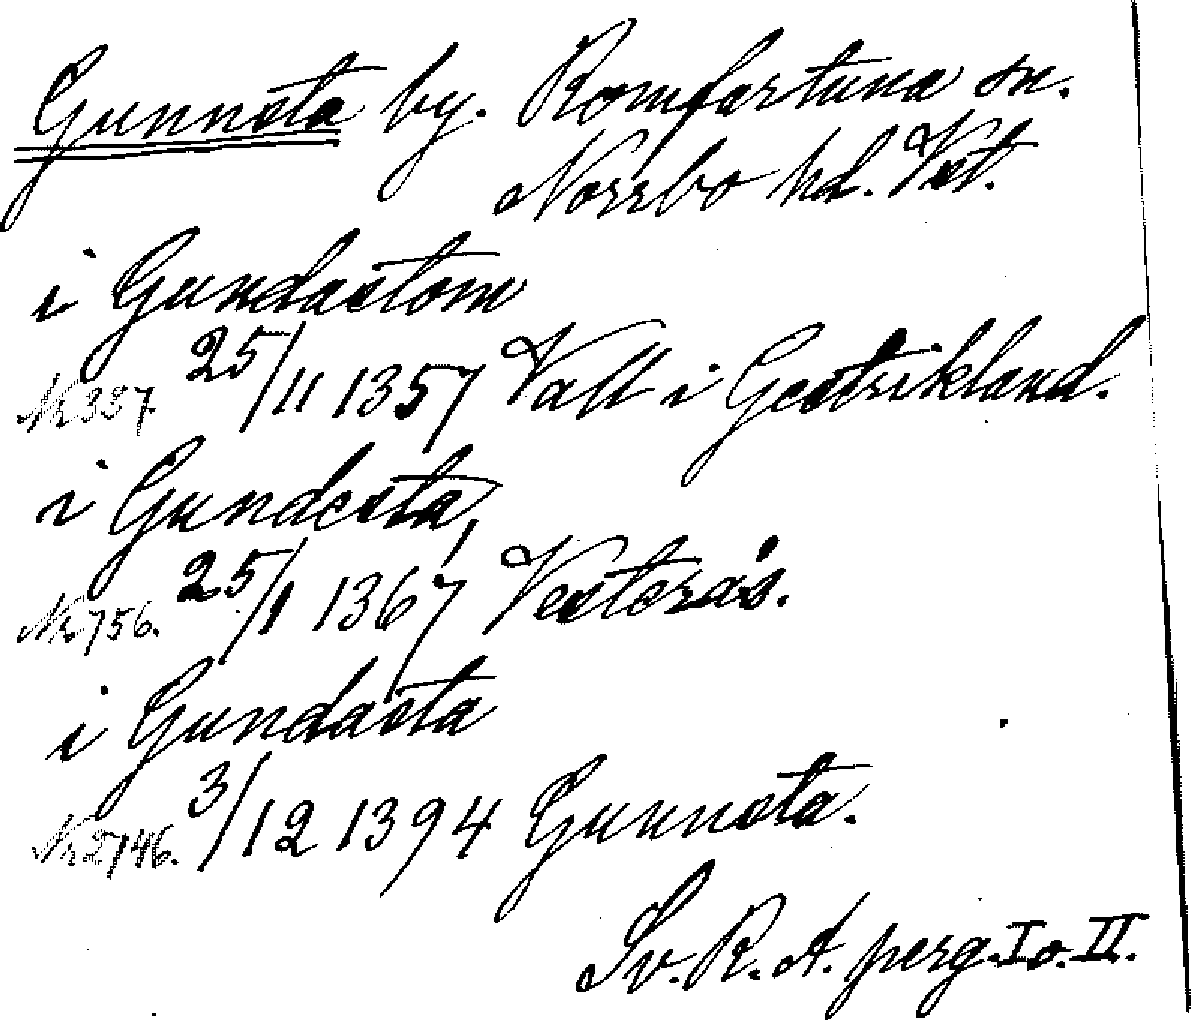 Gunnsta by. Romfartuna sn.
Norrbo hd. Vstt.
i Gundastom
Nr 337. 25/11 1357 Vall i Gestrikland.
i Gundesta,
Nr 756. 25/1 1367 Vesterås.
i Gundasta
Nr 2746. 3/12 1394 Gunnsta.
Sv. R. A. perg. I o. II.